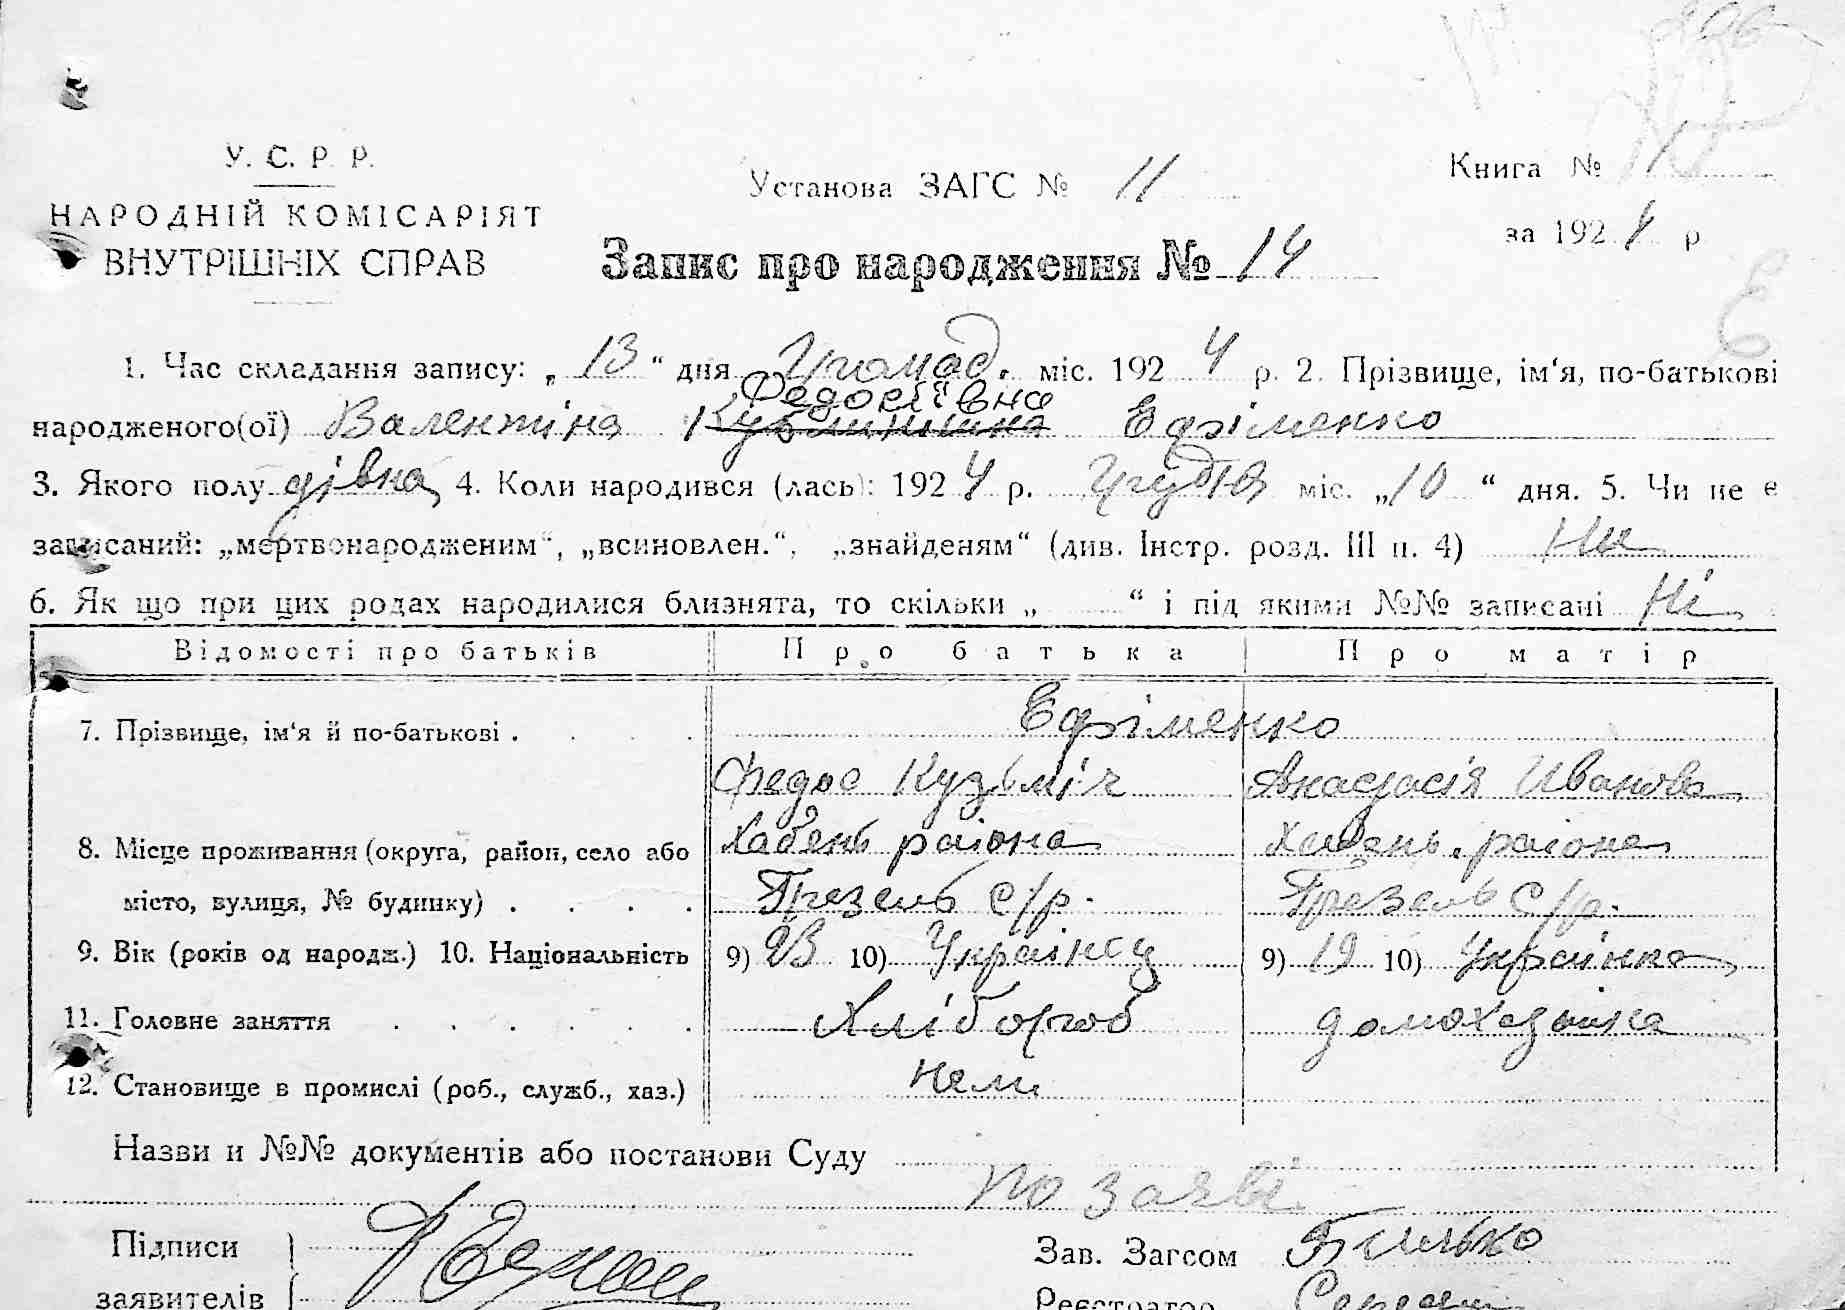 У. С. Р. Р.
НАРОДНІЙ КОМІСАРІЯТ
ВНУТРІШНІХ СПРАВ
Установа ЗАГС № 11
Книга №
за 1924 р
Запис про народження № 14
Є
1. Час складання запису: „13“ дня міс. 1924 р. 2. Прізвище, ім‘я, по-батькові
Федосіївна
народженого(ої) Валентіна Ефіменко
3. Якого полу дівка 4. Коли народився (лась): 1924 р. міс. „10“ дня. 5. Чи не є
записаний: „мертвонародженим“, „всиновлен.“, „знайденям“ (див. Інстр. розд. III п. 4) Ни
6. Як що при цих родах народилися близнята, то скільки „ “ і під якими №№ записані Ні
Відомості про батьків Про батька Про матір
7. Прізвище, ім‘я й по-батькові . Ефіменко
Федос Кузьміч Анастасія Иванова
8. Місце проживання (округа, район, село або Хабень района Хабень. района
місто, вулиця, № будинку) . Грезель с/р. Грезель с/р.
9. Вік (років од народж.) 10. Національність 9) 23 10) Українец 9) 19 10) Українка
11. Головне заняття Хлібороб
12. Становище в промислі (роб., служб., хаз.)
Назви и №№ документів або постанови Суду
по заяві
Підписи Зав. Загсом
заявителів Реєстратор